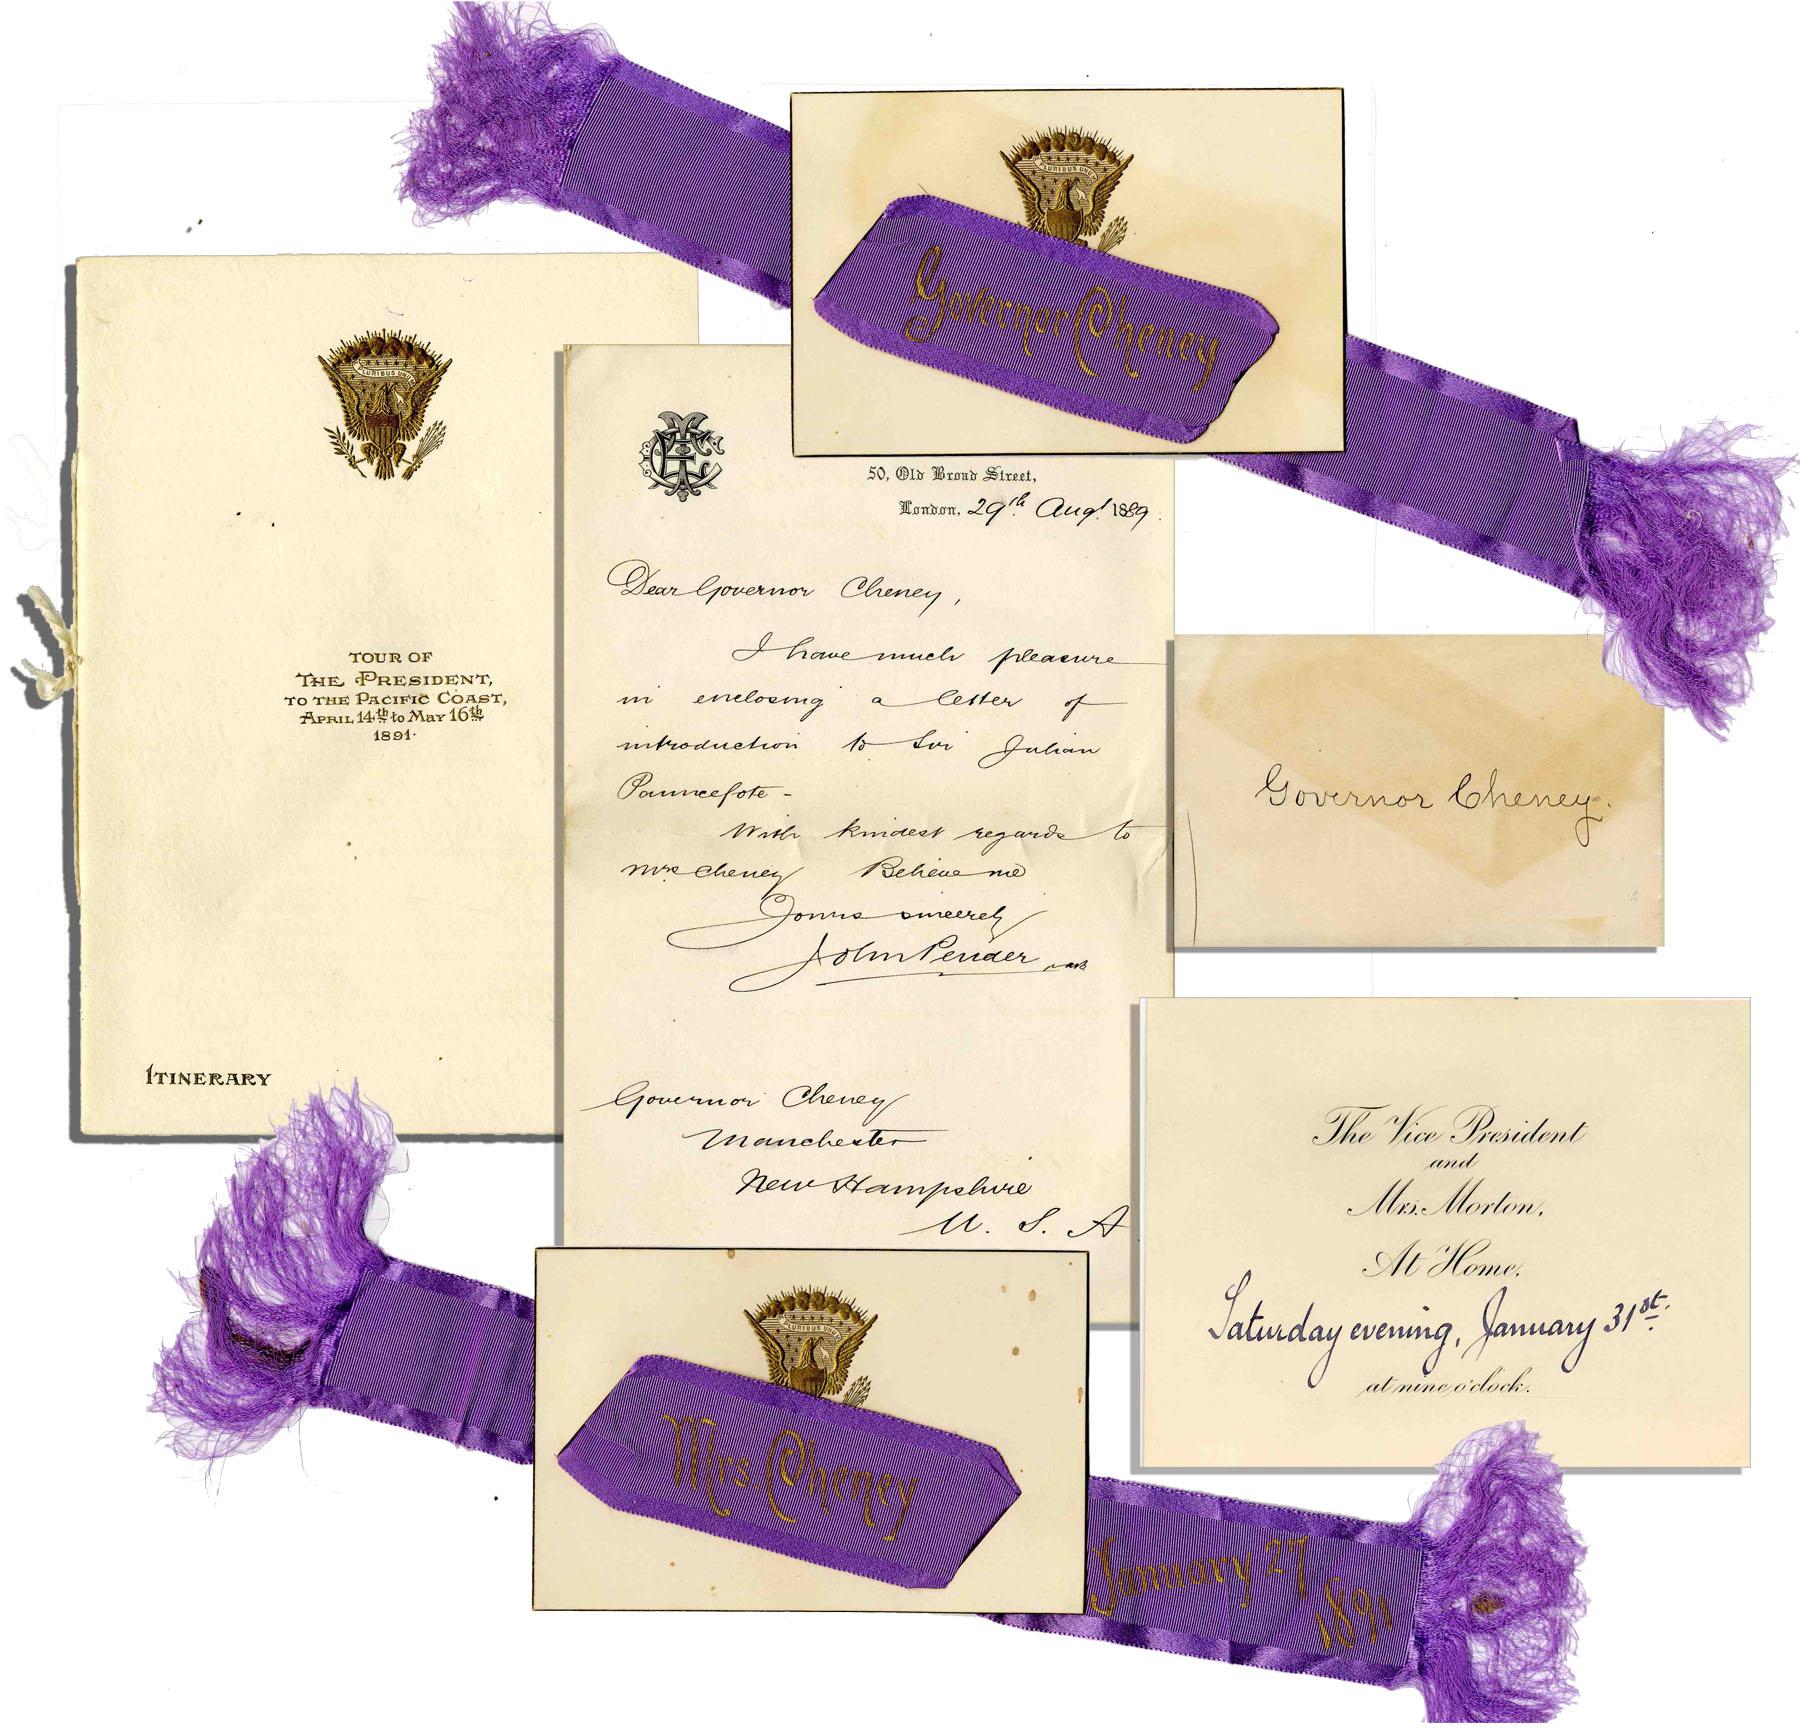 PLURIBUS UNUM
Governor Cheney
PLURIBUS UNUM
TOUR OF
THE PRESIDENT,
TO THE PACIFIC COAST,
APRIL 14th to MAY 16th
1891.
ITINERARY
50, Old Broad Street,
London, 29th Augt 1889.
Dear Governor Cheney,
I have much pleasure
in enclosing a letter of
introduction to Sir Julian
Pauncefote -
With kindest regards to
Mrs Cheney Believe me
Yours sincerely
John Pender
Governor Cheney
Manchester
New Hampshire
U. S. A
Governor Cheney.
The Vice President
and
Mrs. Morton,
At Home,
Saturday evening, January 31st.
at nine o'clock.
PLURIBUS UNUM
Mrs. Cheney
January 27
1891